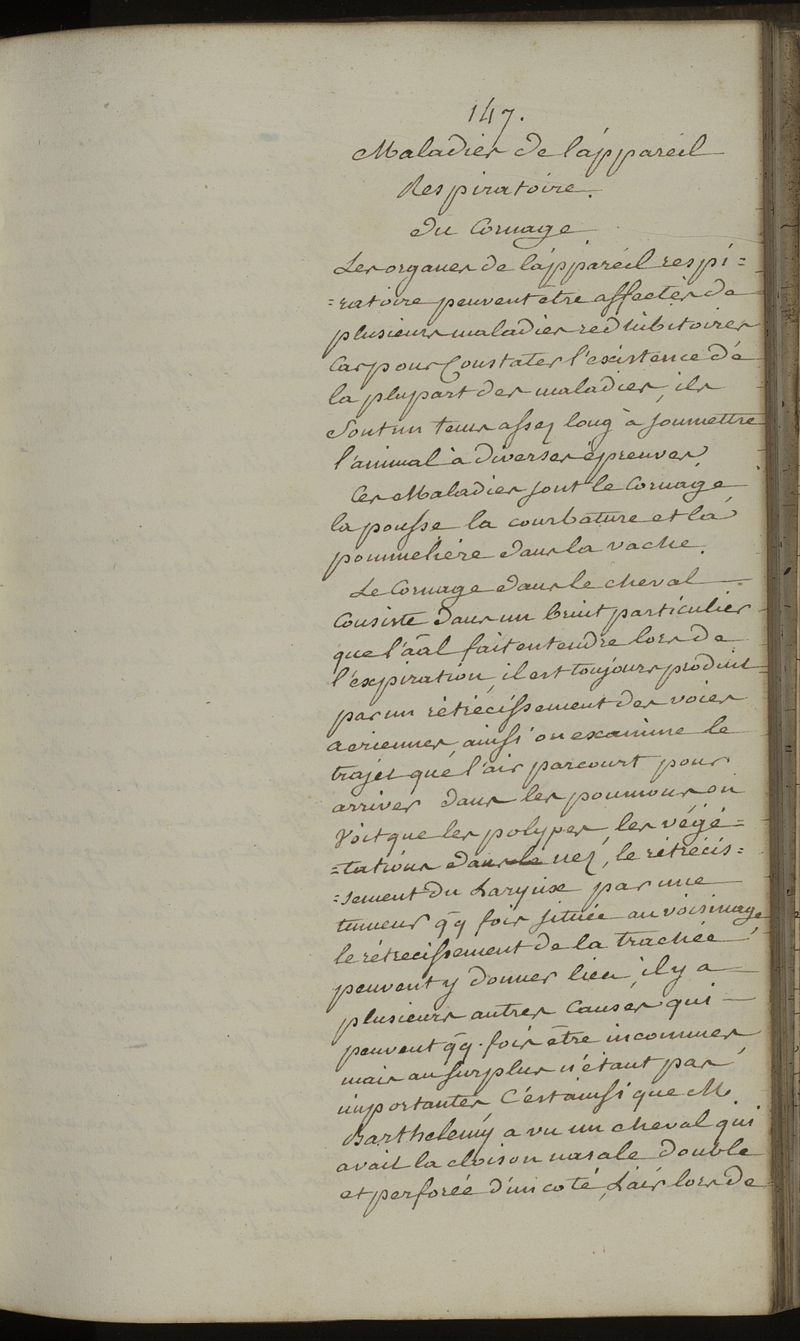 147.
Maladies de l'appareil
Respiratoire.
Du Cornage
Les organes de l'appareil respi=
=ratoire peuvent etre affectés de
plusieurs maladies redhibitoires
Car pour Constater l'existence de
la plupart des maladies, ils
Sont un tems assez long à soumettre
l'animal à diverses épreuves
Ces Maladies sont le Cornage
la pousse la courbature et la
pommelière dans la vache.
Le Cornage dans le cheval
Consiste dans un bruit particulier
que l'aāl fait entendre lors de
l'expiration, il est toujours produit
par un rétrécissement des voies
aeriennes, ainsi on examine le
trajet que l'air parcourt pour
arriver dans les poumons on
Voit que les polypes, les végé=
=tations dans le nez, le rétrécis=
=sement du Larynx par une
tumeur qq fois située au voisinage
le rétrecissement de la trachée
peuvent y donner lieu, il y a
plusieurs autres Causes qui
peuvent qq. fois être inconnues
mais au surplus n'étant pas
importantes C'est ainsi que M.
Barthelemÿ a vu un cheval qui
avait la cloison nasale double
et perforée d'un coté, L'air lors de